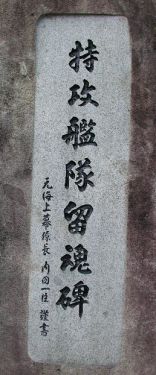 特攻艦隊留魂碑
元海上幕僚長 内田一臣 謹書